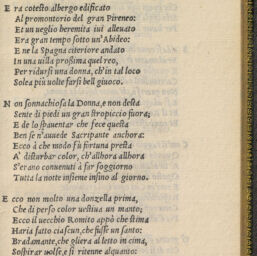 E ra cotesto albergo edificato
Al promontorio del gran Pireneo:
Et un ueglio heremita iui alleuato
Era gran tempo sotto un'Abideo:
E ne la Spagna citeriore andato
In una uilla prossima quel reo,
Per ridursi una donna, ch'in tal loco
Solea piu uolte farsi bel giuoco.
N on sonnachiosa la Donna, e non desta
Sente di piedi un gran stropiccio fuora;
E de lo spauentar che fece questa
Ben se n'auuede Sacripante anchora:
Ecco à che modo fù fortuna presta
A' disturbar color, ch'allhora allhora
S'erano conuenuti à far soggiorno
Tutta la notte insieme insino al giorno.
E cco non molto una donzella prima,
Che di perso color uestiua un manto;
Ecco il uecchio Romito appò che stima
Haria fatto ciascun, che fusse un santo:
Bradamante, che gliera al letto in cima,
Sospirar uolse, e si ritenne alquanto: